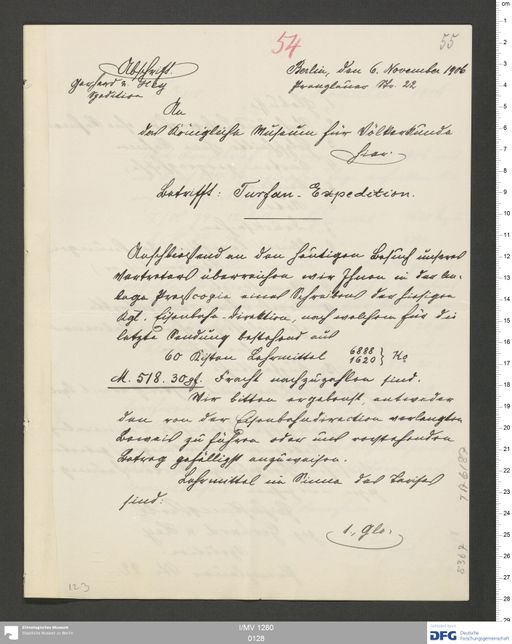 54
55
Abschrift.
Gerhard & Hey
Spedition
Berlin, den 6. November 1906
Prenzlauer Str. 22
An
das Königliche Museum für Völkerkunde
hier.
Betrifft: Turfan-Expedition.
Anschliessend an den heutigen Besuch unseres
Vertreters überreichen wir Ihnen in der An-
lage Presscopie eines Schreibens der hiesigen
Kgl. Eisenbahn-Direktion, nach welchem für die
letzte Sendung bestehend aus
60 Kisten Lehrmittel 6888 } Ko
1620
M. 518.30 pf. Fracht nachzuzahlen sind.
Wir bitten ergebenst entweder
den von der Eisenbahndirection verlangten
Beweis zu führen oder uns vorstehenden
Betrag gefälligst anzuweisen.
Lehrmittel im Sinne des Tarifes
sind:
1, Glo-
123
Ethnologisches Museum
Staatliche Museen zu Berlin
I/MV 1260
0128
DFG Deutsche
Forschungsgemeinschaft